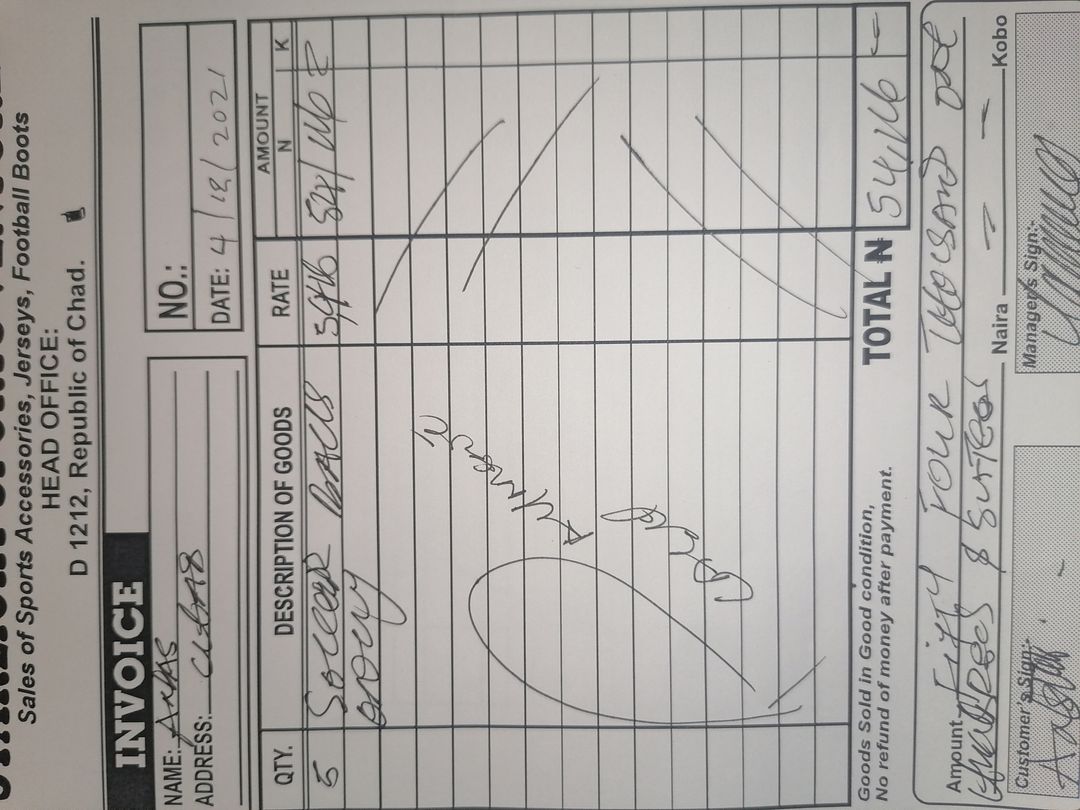 Sales of Sports Accessories, Jerseys, Football Boots
HEAD OFFICE:
D 1212, Republic of Chad.
INVOICE
NO.:
NAME: ANAS
DATE: 4/12/2021
ADDRESS:
QTY. DESCRIPTION OF GOODS RATE AMOUNT
N K
5 SOCCER BALLS
ONLY
TOTAL N 54,116
Goods Sold in Good condition,
No refund of money after payment.
Amount FIFTY FOUR THOUSAND ONE
HUNDRED & SIXTEEN Naira Kobo
Customer's Sign:- Manager's Sign:-